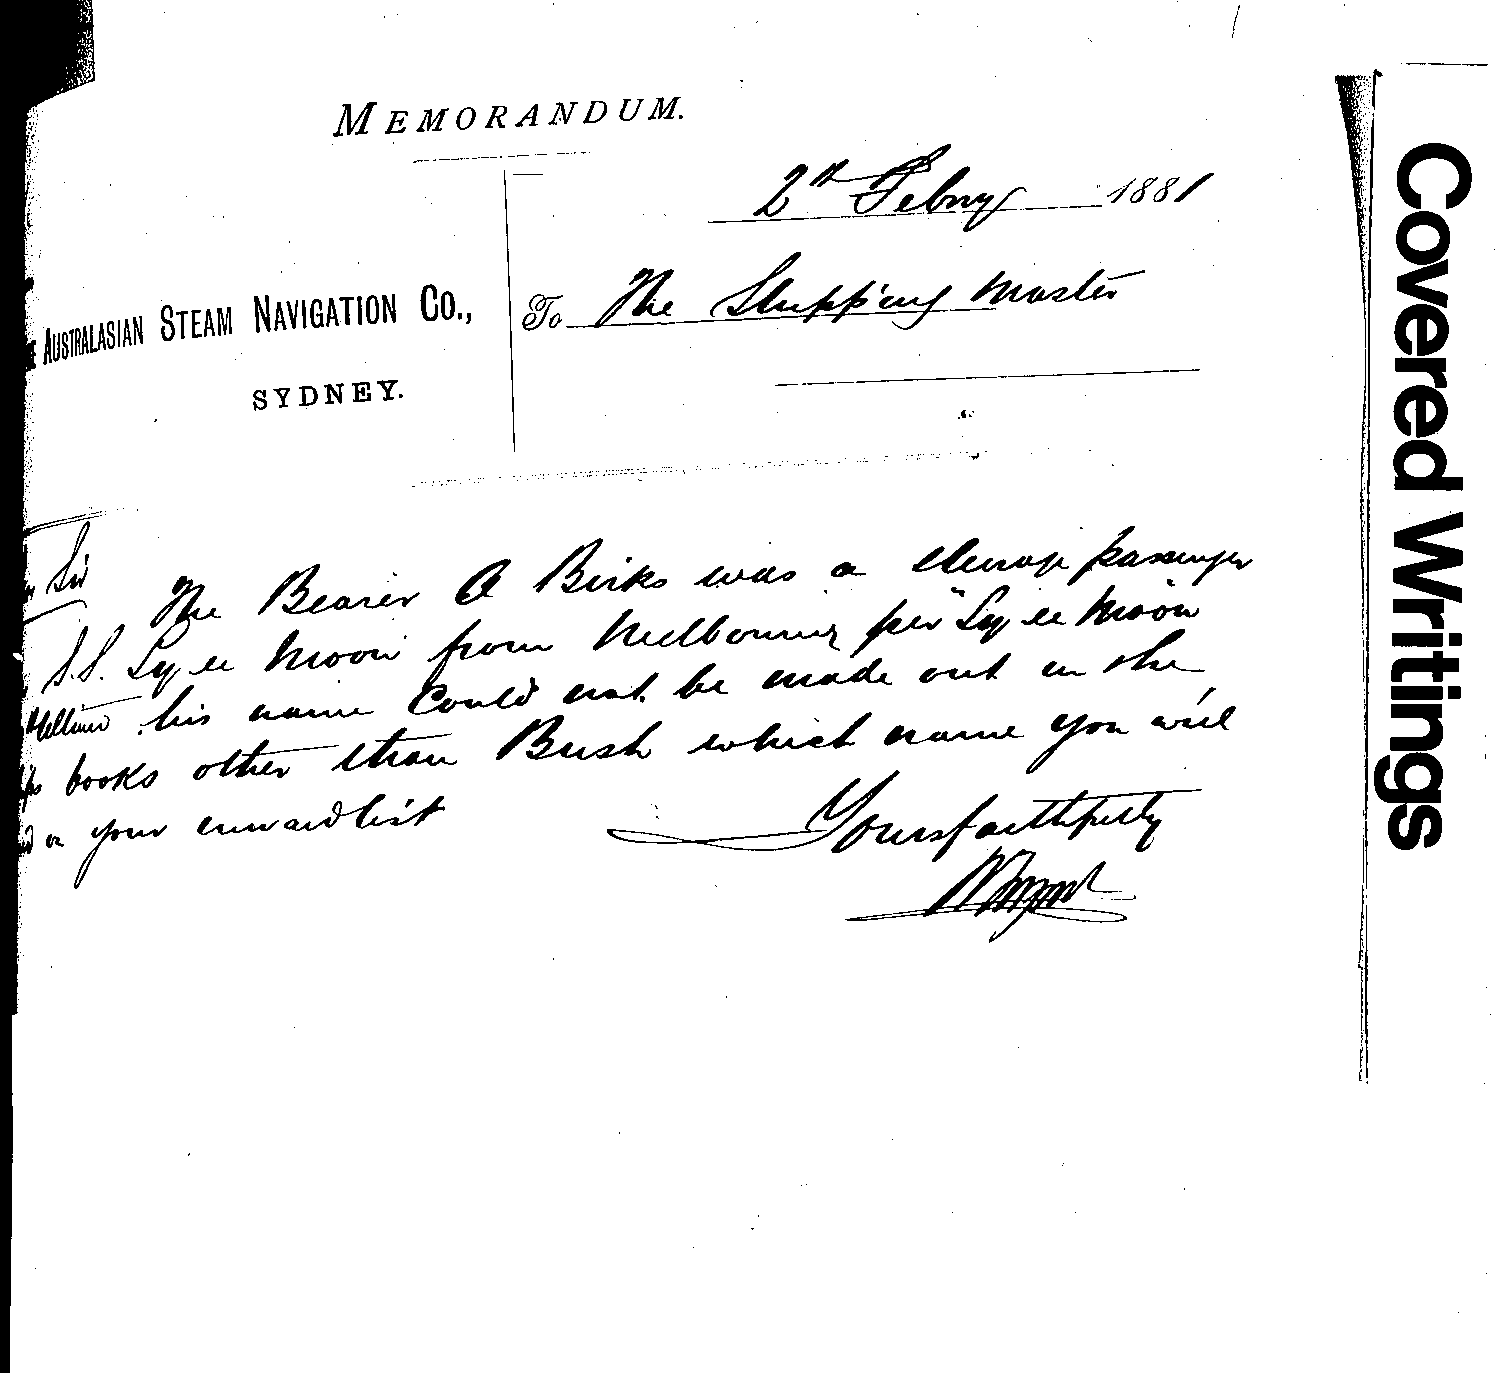 MEMORANDUM.
2nd Febry 1881
AUSTRALASIAN STEAM NAVIGATION CO.,
SYDNEY.
To The Shipping Master
Sir
The Bearer A Birks was a steerage passenger
S.S. Ly ee Moon from Melbourne per "Ly ee Moon"
his name could not be made out in the
books other than Bush which name you will
on your inward list
Yours faithfully
Covered Writings